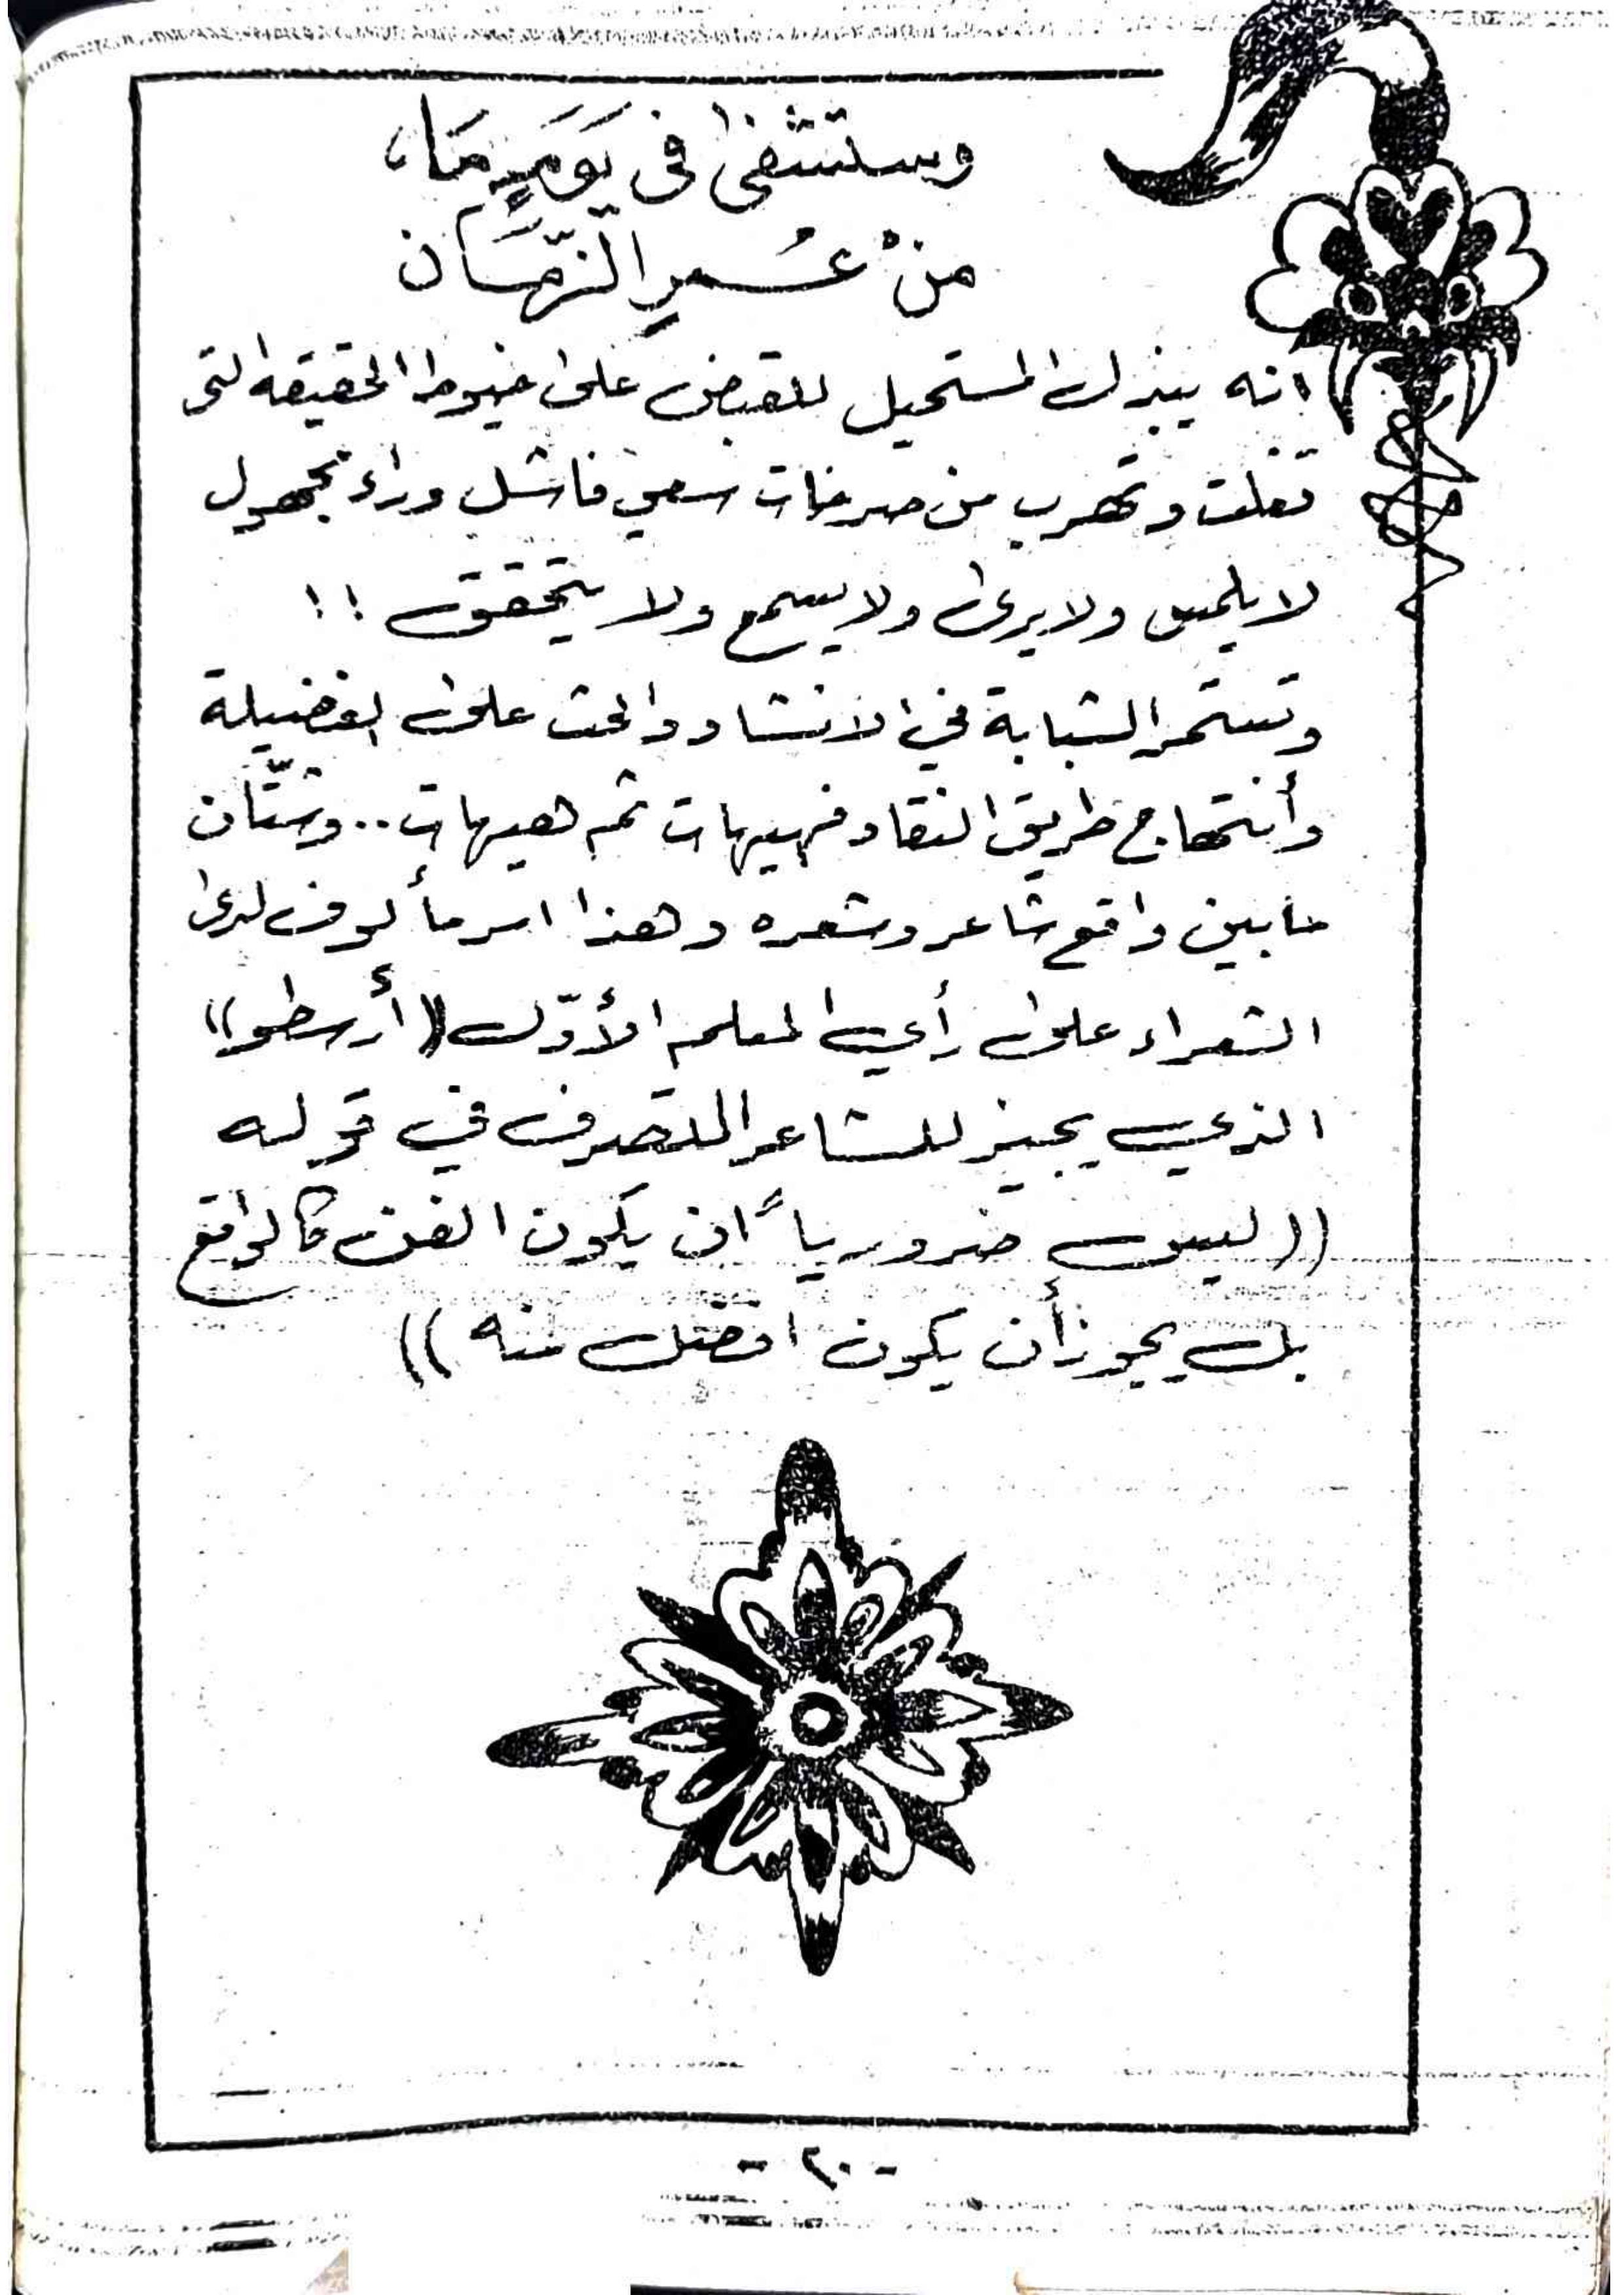 وستشفىٰ فى يَوَمٍ مَا،
منْ عُـمرِ الزّمَان
انه يبذل المستحيل للقبض على خيوط الحقيقه التى
تفلت وتهرب من صرخات سعي فاشل وراء مجهول
لا يلمس ولا يرى ولا يسمع ولا يتحقق !!
وتستمر الشبابة في الانشاد والحث على الفضيلة
وأنتهاج طريق النقاد فهيهات ثم هيهات.. وشتّان
مابين واقع شاعر وشعره وهذا امر مألوف لدى
الشعراء على رأي المعلم الأوّل ((أرسطو))
الذي يجيز للشاعر التصرف في قوله
((ليس ضرورياً ان يكون الفن كالواقع
بل يجوز أن يكون افضل منه))
- ٢٠ -